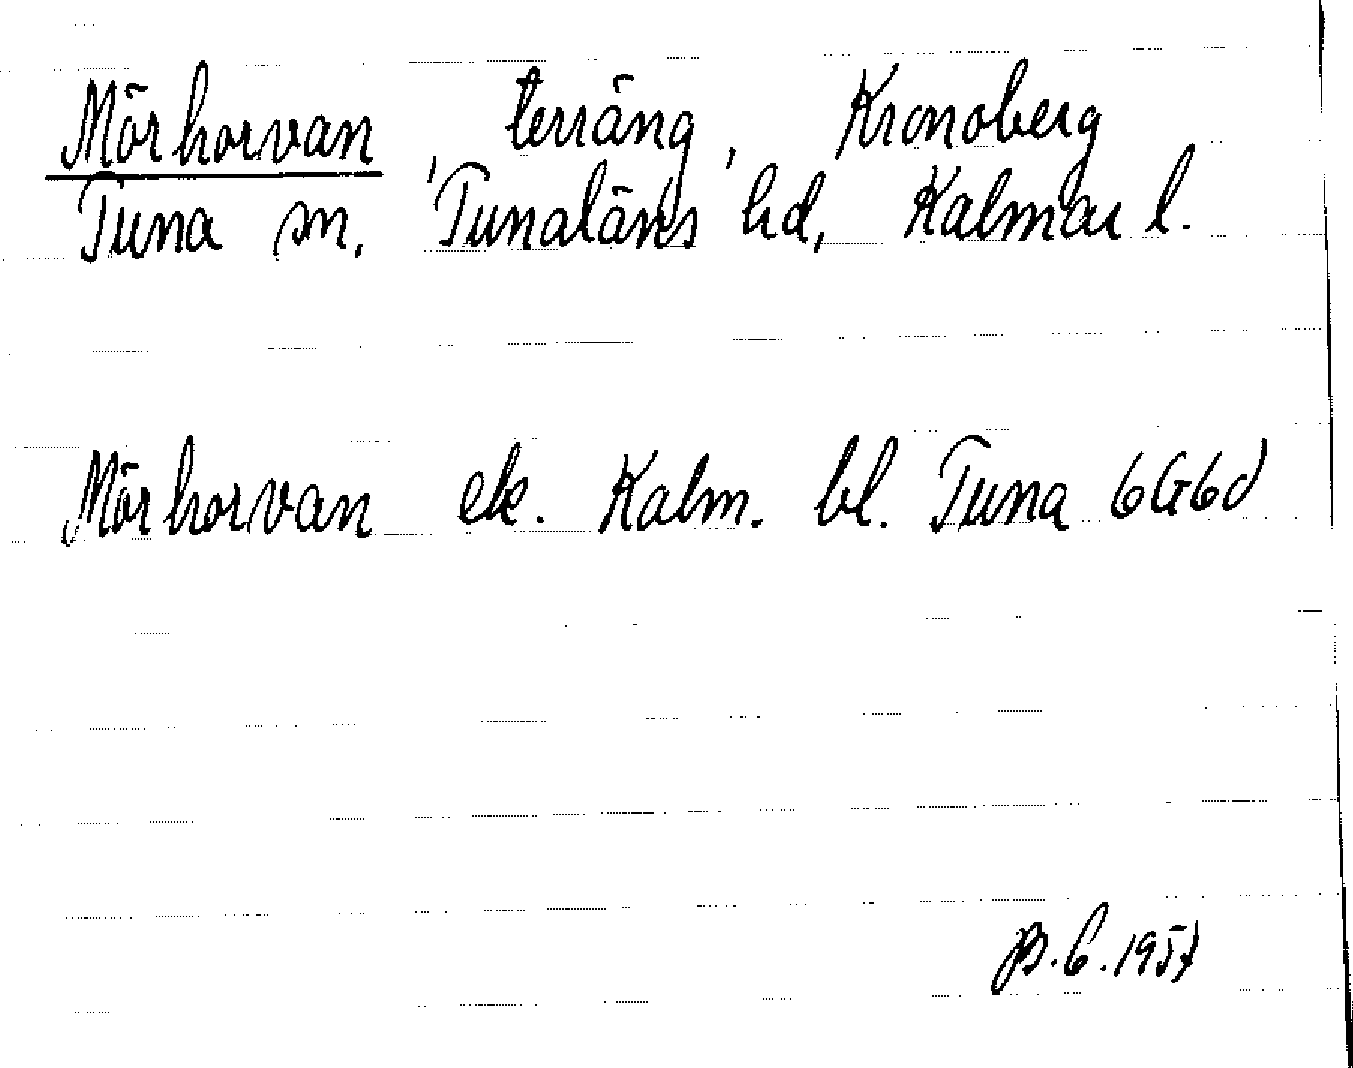 Mörhorvan, terräng, Kronoberg
Tuna sn, Tunaläns hd, Kalmar l.
Mörhorvan ek. Kalm. bl. Tuna 6G6d
B.C. 1957